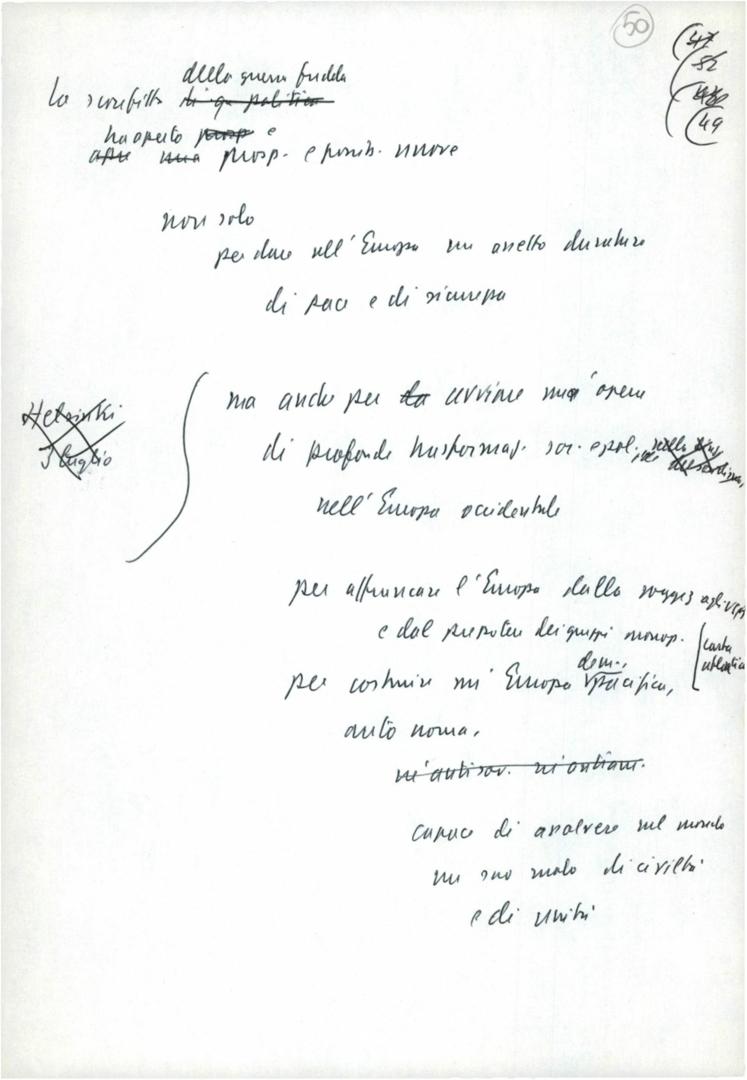 50
47
52
48
49
della guerra fredda
la sconfitta di q. politica
ha aperto prosp e
apre una prosp. e possib. nuove
non solo
per dare all'Europa un assetto duraturo
di pace e di sicurezza
ma anche per la avviare un'opera
di profonde trasformaz. soc. e pol.
nell'Europa occidentale
Helsinki
3 luglio
per affrancare l'Europa dalla sogges agli USA
e dal prepotere dei gruppi monop.
carta
atlantica
dem.,
per costruire un'Europa pacifica,
autonoma,
né antisov. né antiam.
capace di assolvere nel mondo
un suo ruolo di civiltà
e di unità